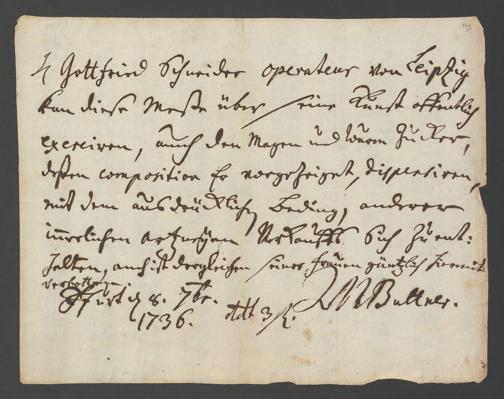 H Gottfried Schneider operateur von Leipzig
kan diese Meße über seine Kunst offentlich
exerciren, auch den Magen und Wurm Zucker,
deßen composition Er vorgezeiget, dispensiren,
mit dem ausdrücklichen Beding, anderer
innerlichen Verkauffs Sich zu ent:
halten, auch ist dergleichen seiner Frauen gäntzlich hiermit
verbotten
d 8. 7br. Buttner.
1736.